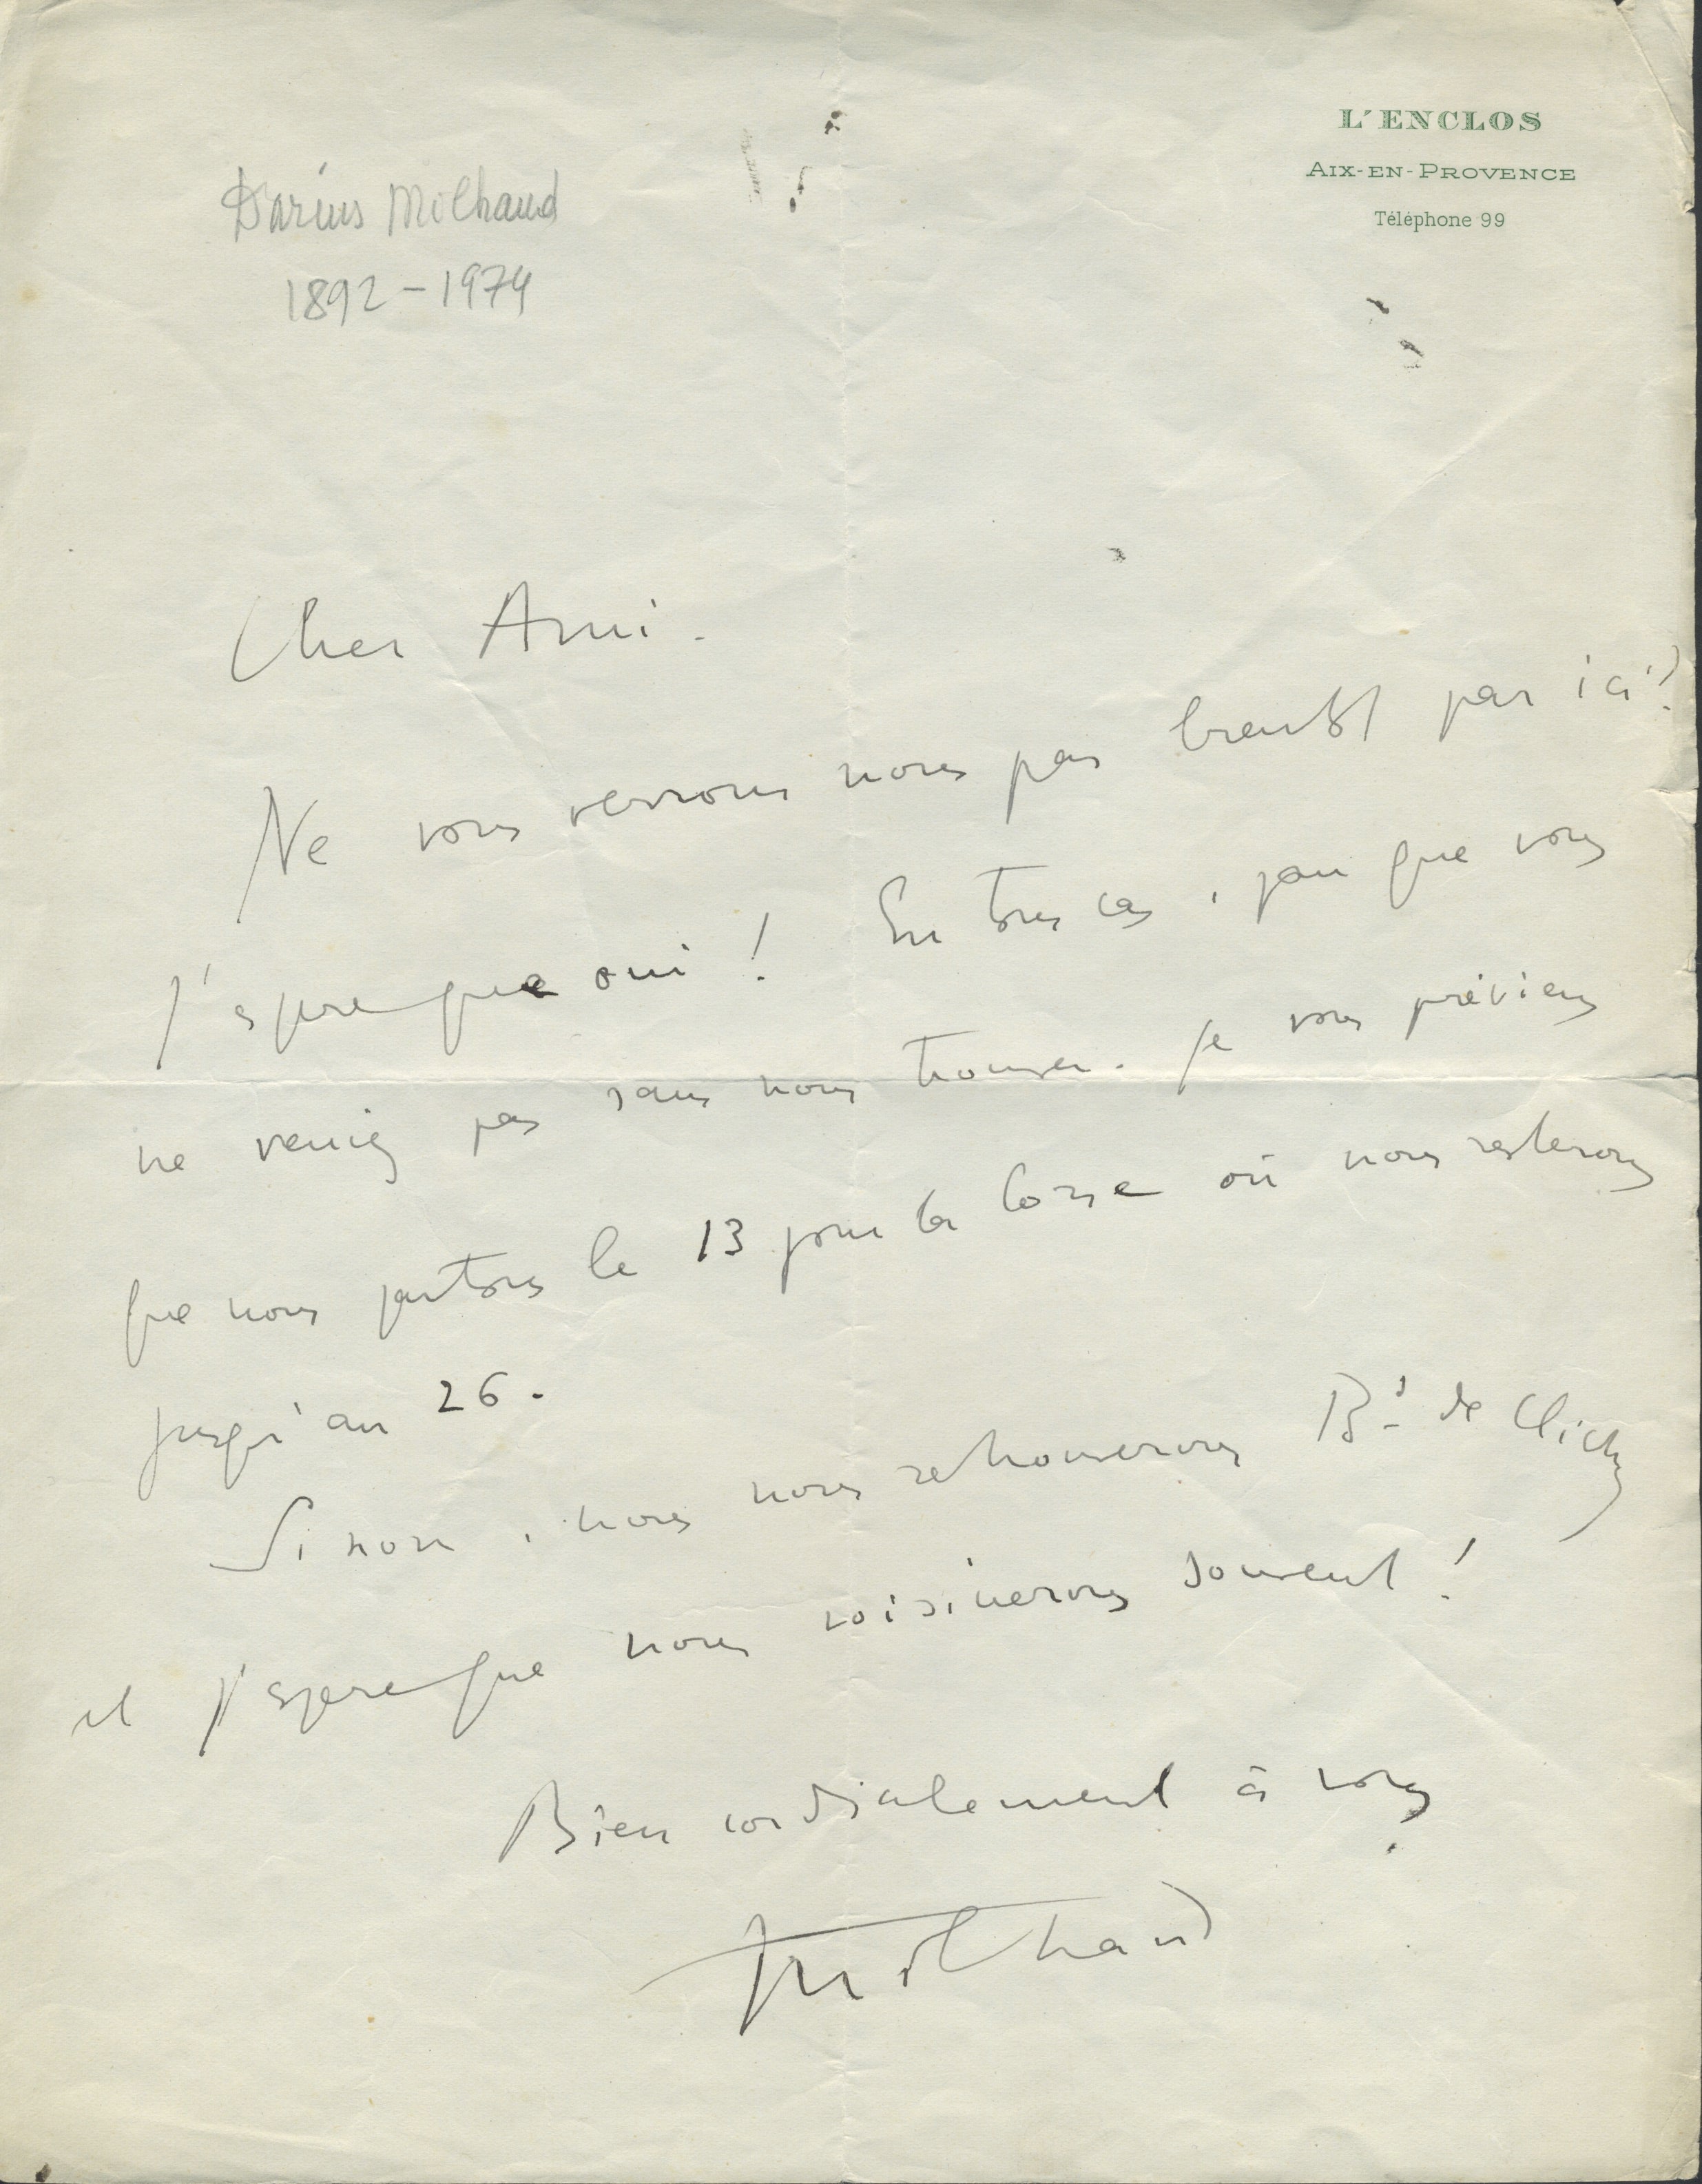 L'ENCLOS
AIX-EN-PROVENCE
Téléphone 99
Darius Milhaud
1892-1974
Cher Ami.
Ne vous verrons nous pas bientôt par ici?
J'espere que oui! En tous cas, pour que vous
ne veniez pas sans nous trouver. je vous préviens
que nous partons le 13 pour la Corse où nous resterons
jusqu'au 26.
Sinon, nous nous retrouverons Bd de Clichy
et j'espere que nous voisinerons souvent!
Bien cordialement à vous
Milhaud